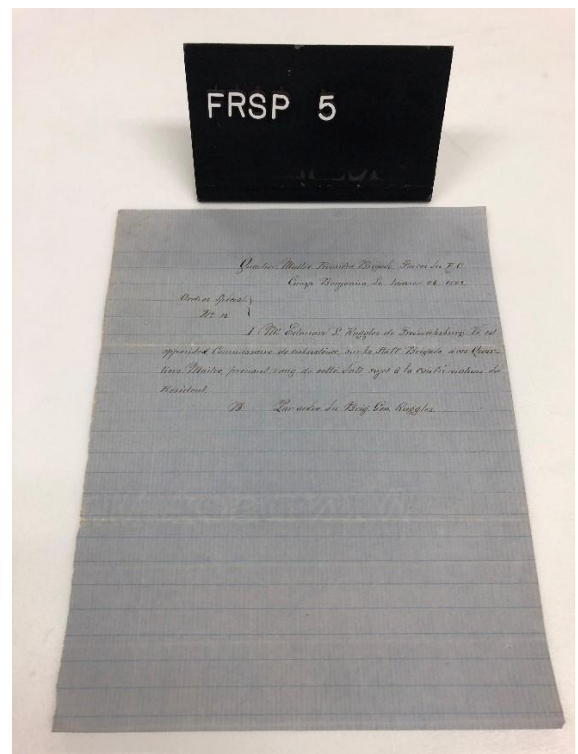 FRSP 5
Quartier Maitre Première Brigade Forces du F. C.
Camp Benjamin La Janvier 24 1862
Ordres Spécial
No. 12
1. Mr. Edmund S. Ruggles de Fredericksburg Va est
appointed Commissaire de subsistence, sur la Staff Brigade avec Quar-
tiers Maitre, prenant rang de cette date sujet à la du
President.
Par ordre du Brig. Gen. Ruggles